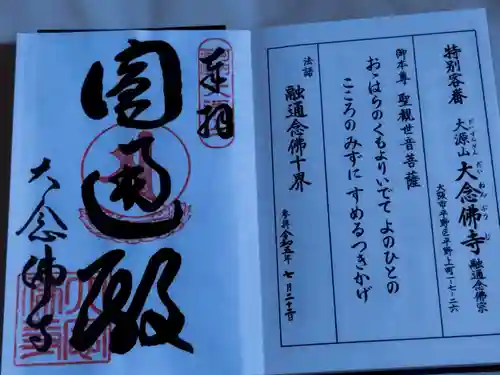 特別客番
大源山 大念佛寺 融通念佛宗
だいげんざん だいねんぶつじ
大阪市平野区平野上町一-七-二六
御本尊 聖観世音菩薩
おゝはらのくもよりいでて よのひとの
こころのみずに すめるつきかげ
法語 融通念佛十界
参拝 令和五年 七月二十二日
奉拝
圓通殿
大念佛寺